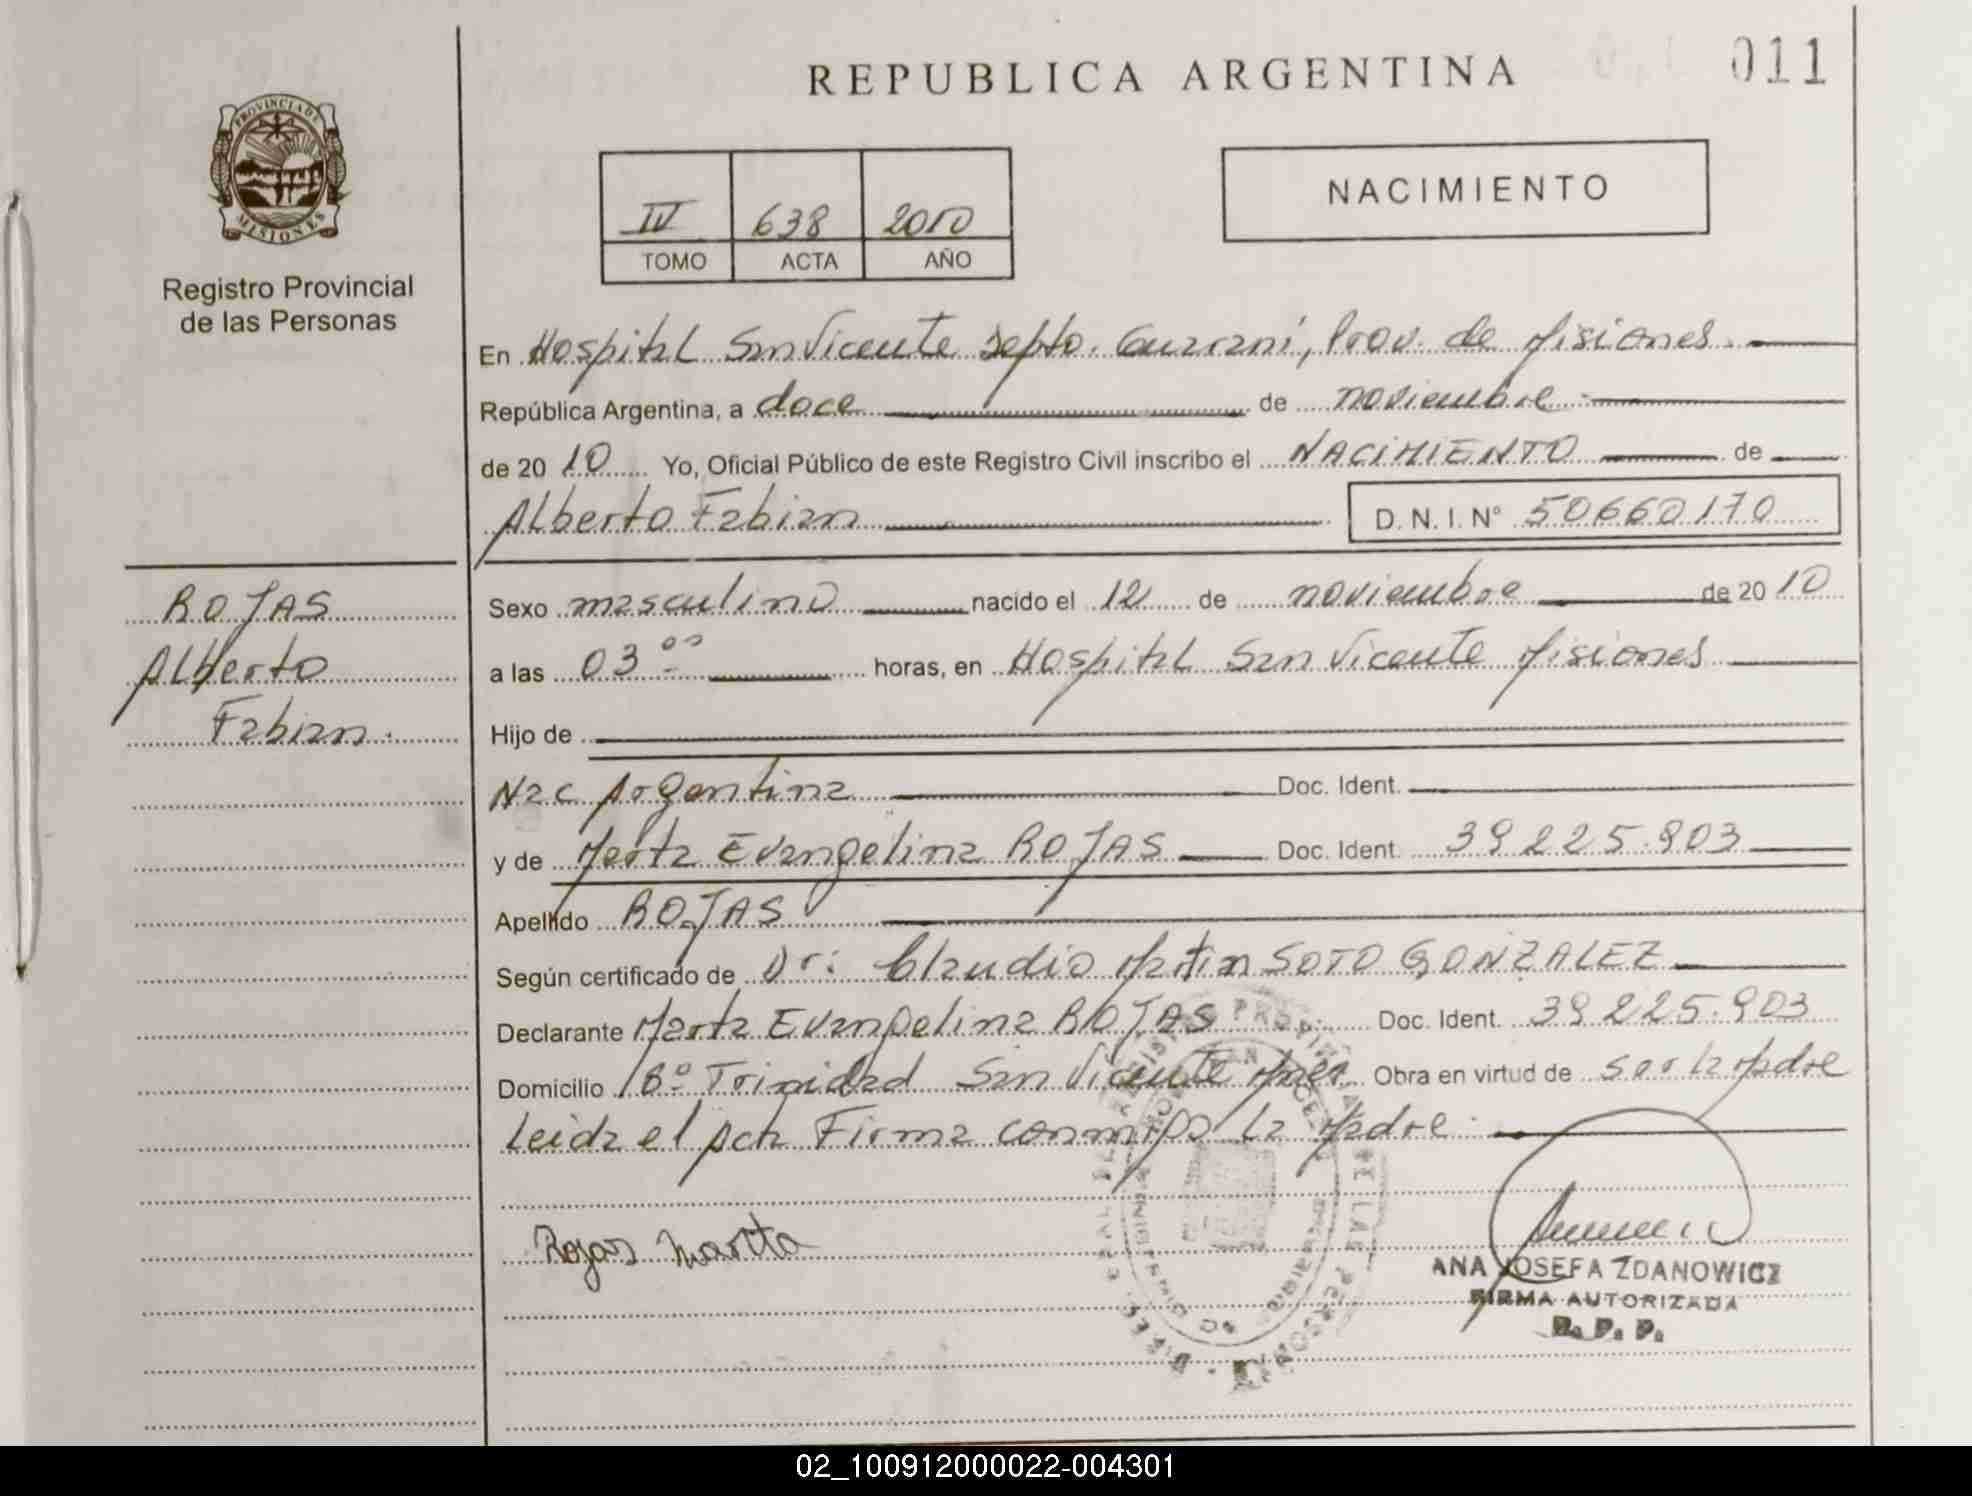 REPUBLICA ARGENTINA
011
PROVINCIA DE
MISIONES
Registro Provincial
de las Personas
IV 638 2010
TOMO ACTA AÑO
NACIMIENTO
En Hospital San Vicente Depto. Guarani, Prov. de Misiones.
República Argentina, a doce de noviembre
de 20 10 Yo, Oficial Público de este Registro Civil inscribo el NACIMIENTO de
Alberto Fabian D. N. I. Nº 50660170
ROJAS
Alberto
Fabian.
Sexo masculino nacido el 12 de noviembre de 20 10
a las 03 00 horas, en Hospital San Vicente Misiones
Hijo de
Nac Argentina Doc. Ident.
y de Marta Evangelina ROJAS Doc. Ident. 39225.903
Apellido ROJAS
Según certificado de Dr: Claudio Martin SOTO GONZALEZ
Declarante Marta Evangelina ROJAS Doc. Ident. 39225.903
Domicilio Bº Trinidad San Vicente Mnes. Obra en virtud de ser la Madre
Leida el Acta Firma conmigo la Madre.
Rojas Marta
ANA JOSEFA ZDANOWICZ
FIRMA AUTORIZADA
R. P. P.
02_100912000022-004301